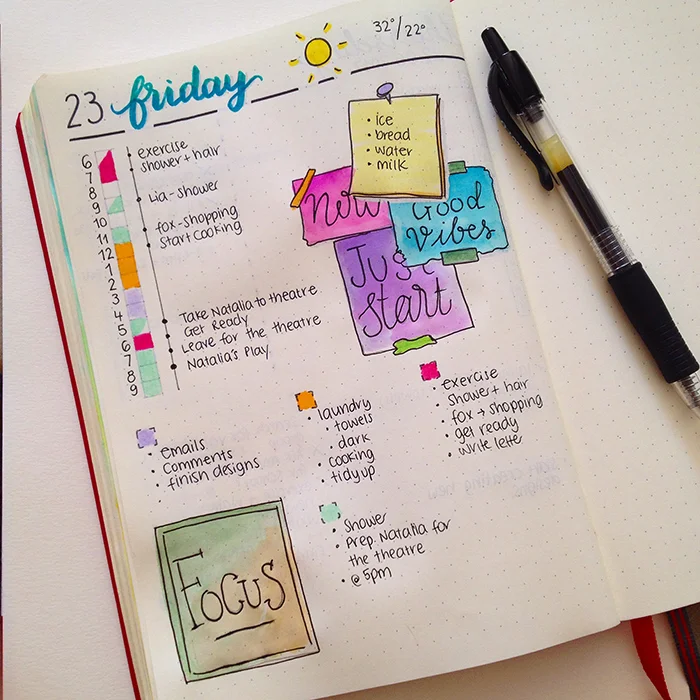 23 friday
32°/22°
6
7
8
9
10
11
12
1
2
3
4
5
6
7
8
9
exercise
shower + hair
Lia-shower
fox-shopping
Start cooking
Take Natalia to theatre
Get Ready
Leave for the theatre
Natalia's Play
• ice
• bread
• water
• milk
Now
Good
Vibes
Just
Start
• emails
• Comments
• finish designs
•
• laundry
• towels
• dark
• cooking
• tidy up
• exercise
• Shower + hair
• fox → shopping
• get ready
• write lette
• Shower
• Prep. Natalia for
the theatre
• @ 5pm
Focus